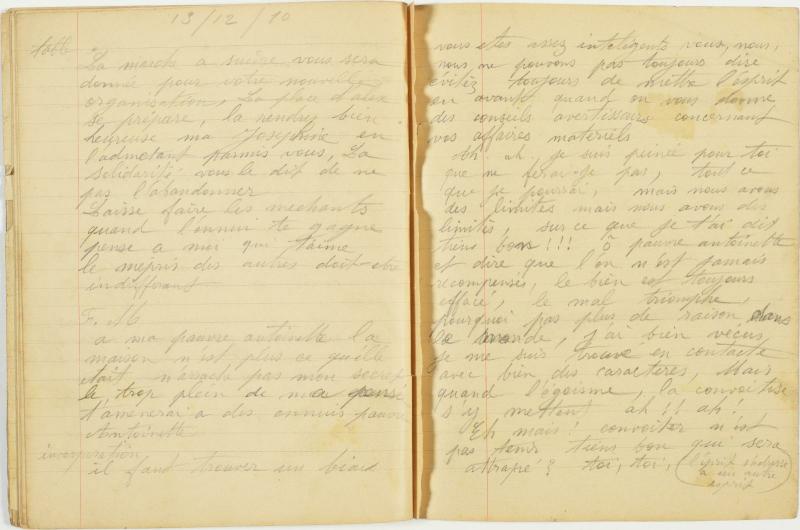 13/12/10
table La marche a suivre vous sera
donnée pour votre nouvelle
organisation, La place d'alex
se prépare, la rendrez bien
heureuse ma Joséphine en
l'admetant parmis vous, La
solidarité vous le dit de ne
pas l'abandonner
Laisse faire les mechants
quand l'ennui te gagne
pense a moi qui t'aime
le mepris des autres doit-etre
indifferant
F. M
a ma pauvre antoinette la
maison n'est plus ce quelle
etait n'arrache pas mon secret
le trop plein de ma pensé
t'amenerai a des ennuis pauvre
Antoinette
incorporation
il faut trouver un biais
vous etes assez inteligents vous, nous,
nous ne pouvons pas toujours dire
évitez toujours de mettre l'ésprit
en avant quand on vous donne
des conseils avertisseurs concernant
vos affaires materiels
Ah. ah, je suis peinée pour toi
que ne ferai-je pas, tout ce
que je pourrai, mais nous avons
des limites mais nous avons des
limites, sur ce que je t'ai dit
tiens bon !!! ô pauvre antoinette
et dire que l'on n'est jamais
récompensés, le bien est toujours
effacé, le mal triomphe,
pourquoi pas plus de raison dans
le monde, j'ai bien vécus
je me suis trouvé en contacte
avec bien des caracteres, Mais
quand l'égoisme, la convoitise
s'y mettent ah !! ah !
Eh mais ! convoiter n'est
pas tenir tiens bon qui sera
attrapé ? toi, toi,
l'ésprit s'adresse
a un autre
esprit